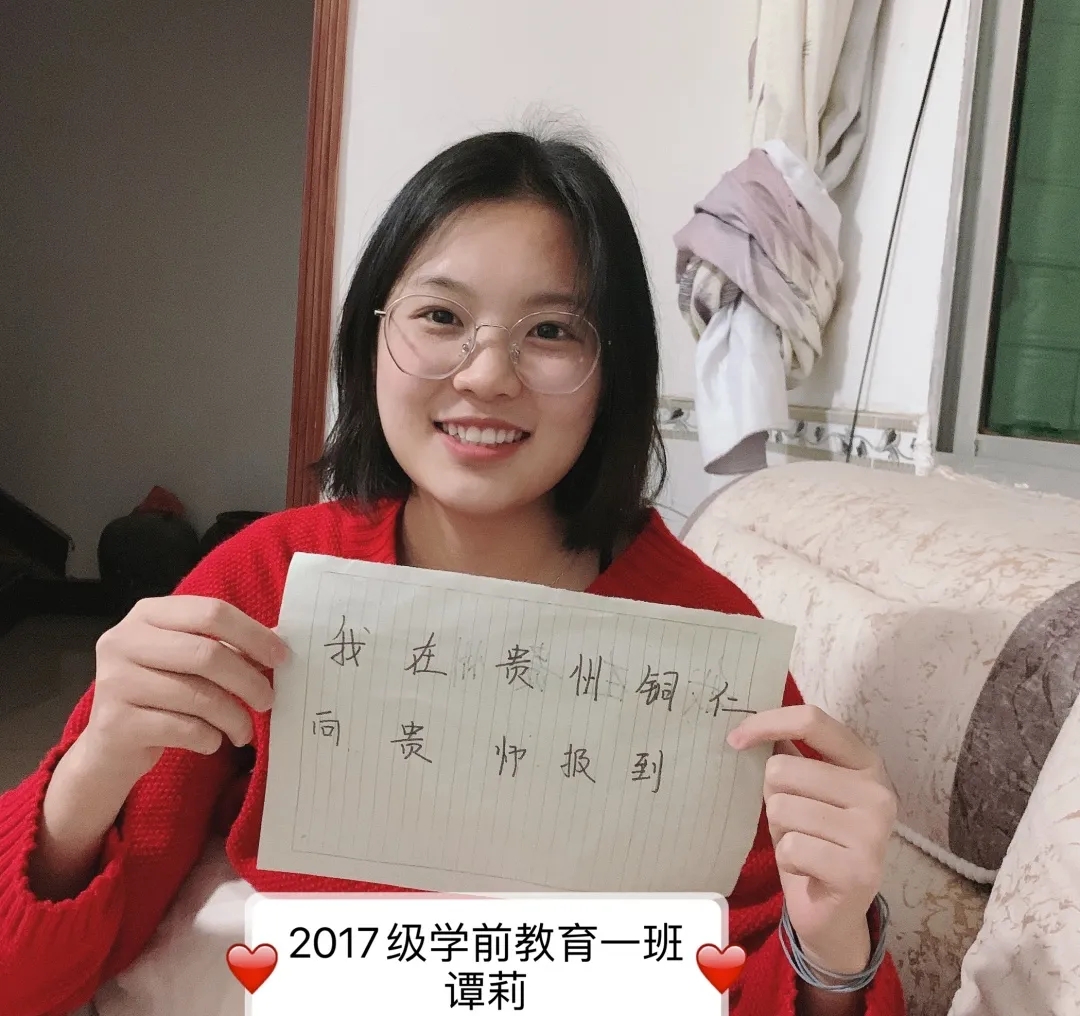 我在贵州铜仁
向贵师报到
2017级学前教育一班
谭莉